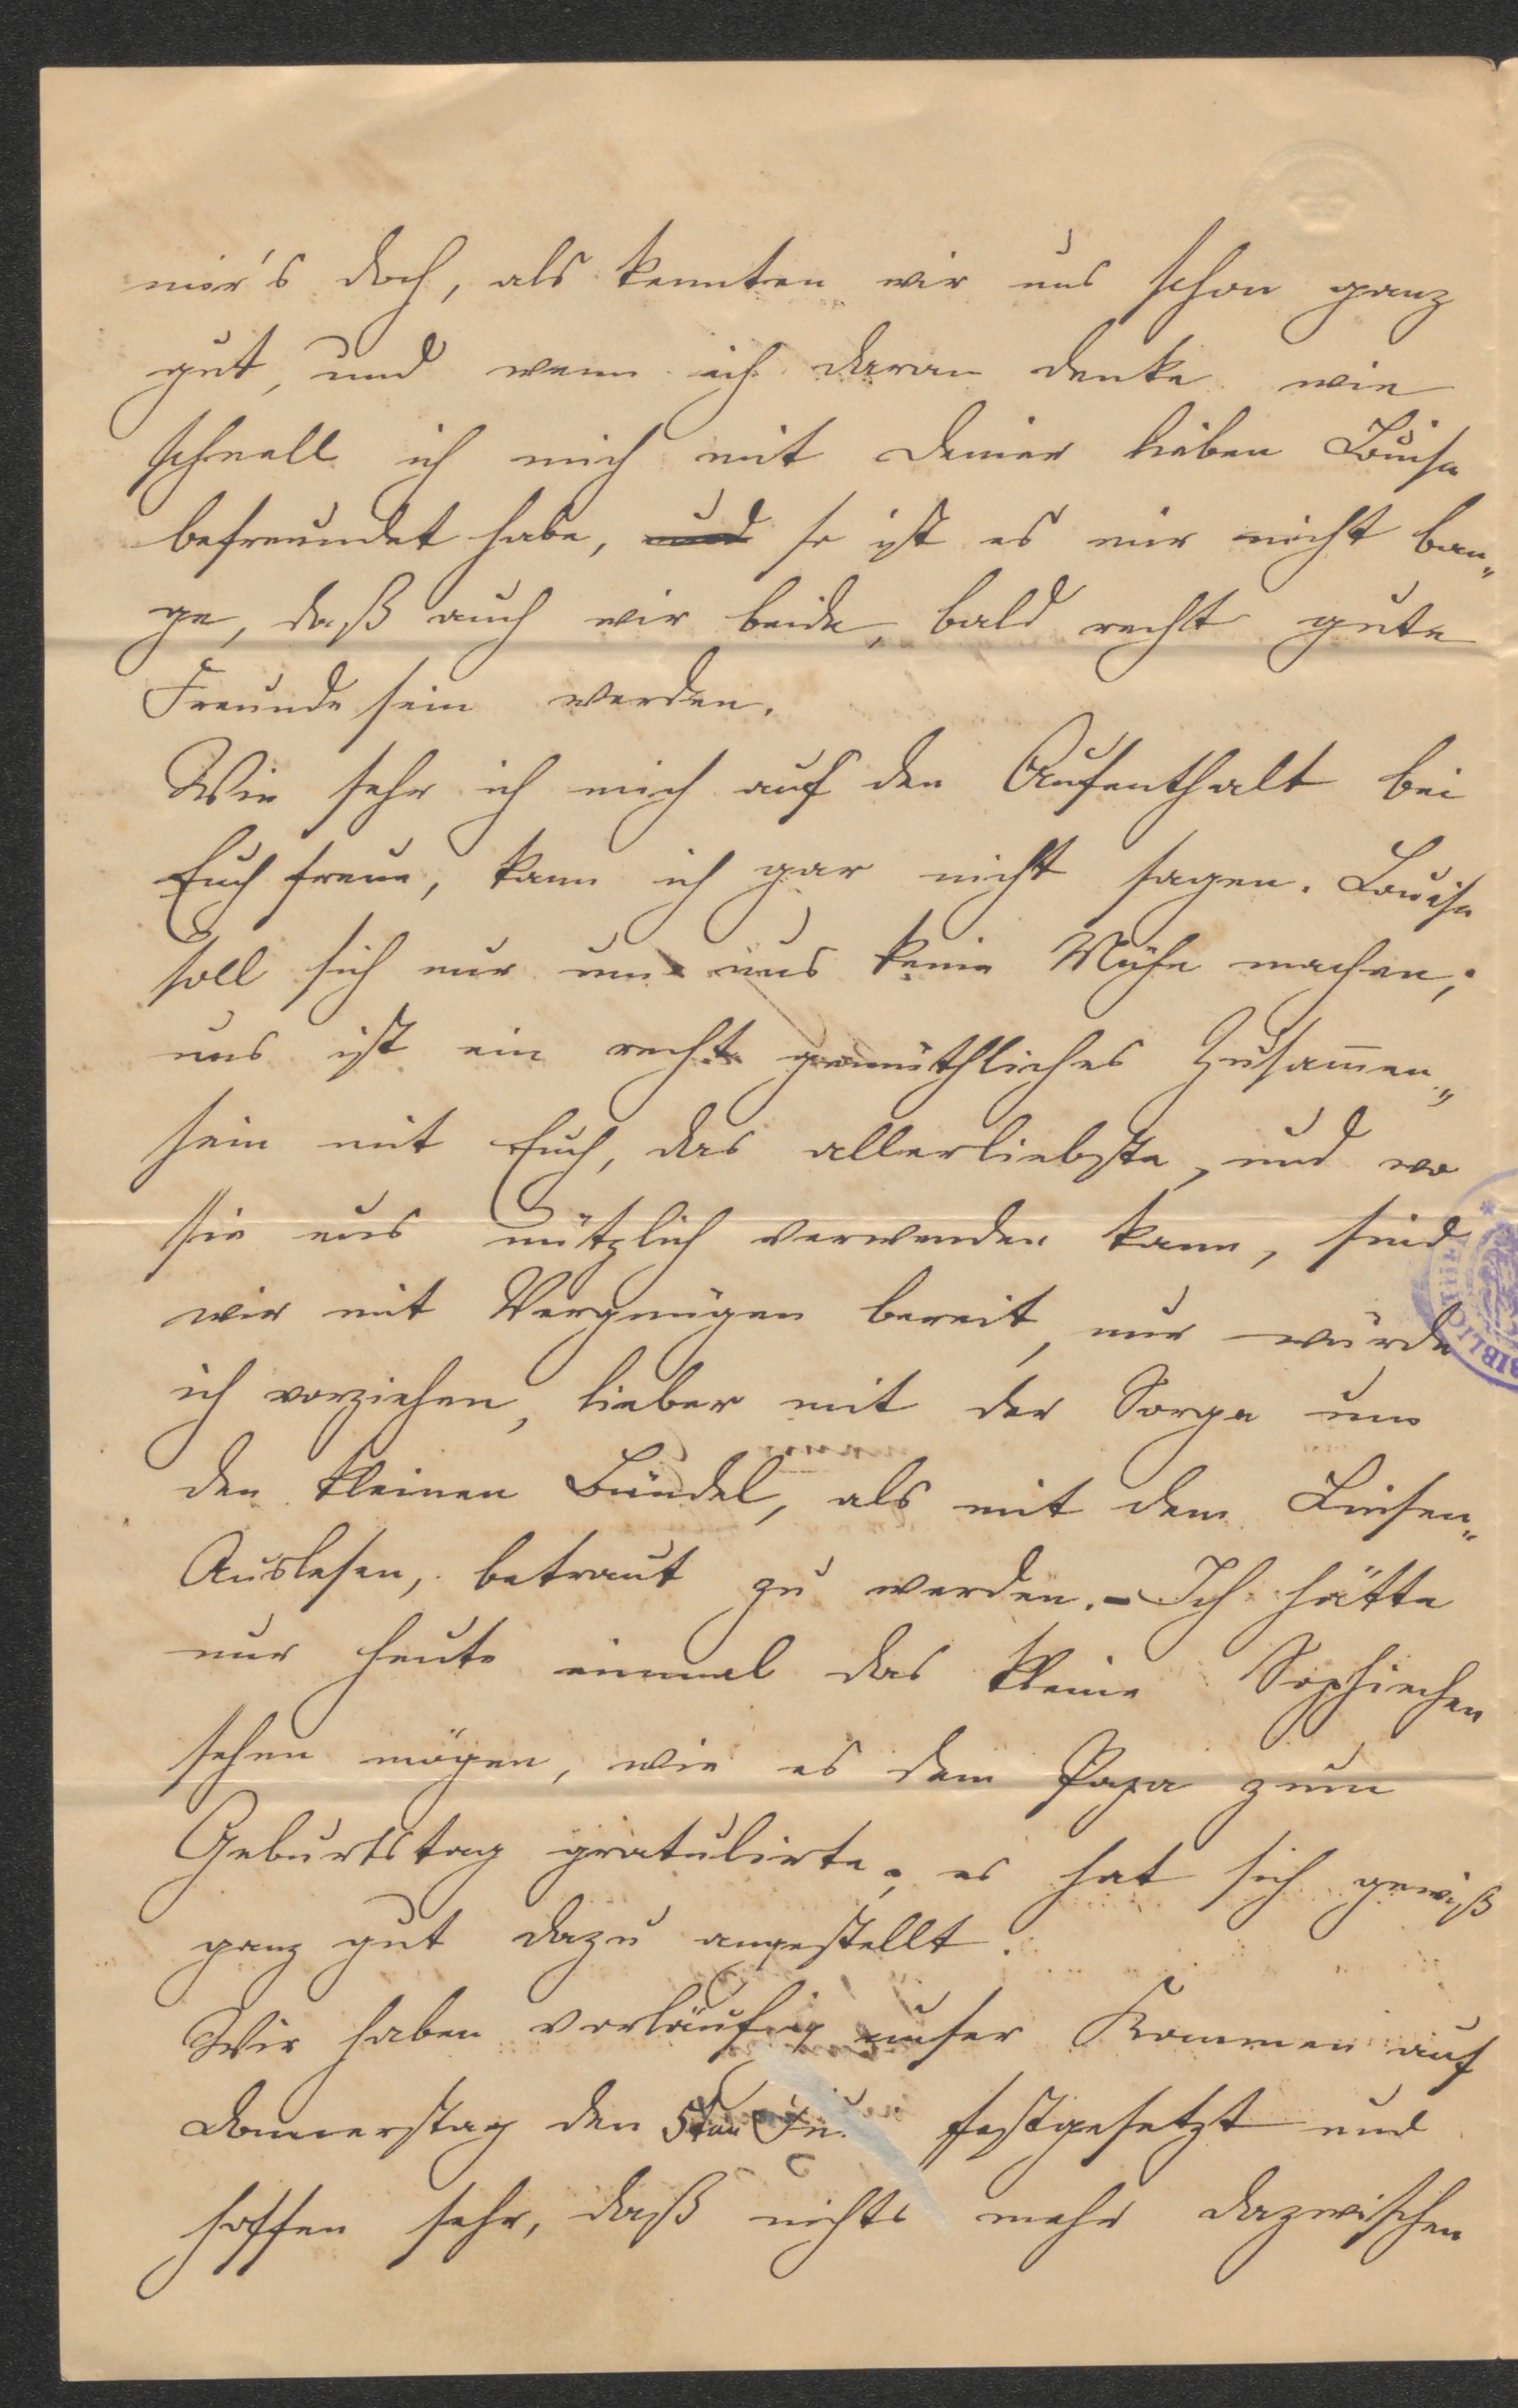 mir's doch, als kennten wir uns schon ganz
gut, und wenn ich daran denke wie
schnell ich mich mit Deiner lieben Louise
befreundet habe, und so ist es mir nicht ban„
ge, daß auch wir beide, bald recht gute
Freunde sein werden.
Wie sehr ich mich auf den Aufenthalt bei
Euch freue, kann ich gar nicht sagen. Louise
soll sich nur um uns keine Mühe machen;
uns ist ein recht gemüthliches Zusam̅en„
sein mit Euch, das allerliebste, und wo
sie uns nützlich verwenden kann, sind
wir mit Vergnügen bereit, nur würde
ich vorziehen, lieber mit der Sorge um
den kleinen Bündel, als mit dem Linsen„
Auslesen, betraut zu werden. - Ich hätte
nur heute einmal das kleine Sophiechen
sehen mögen, wie es dem Papa zum
Geburtstag gratulirte; es hat sich gewiß
ganz gut dazu angestellt.
Wir haben vorläufig unser Kommen auf
Donnerstag den 5ten festgesetzt und
hoffen sehr, daß nichts mehr dazwischen